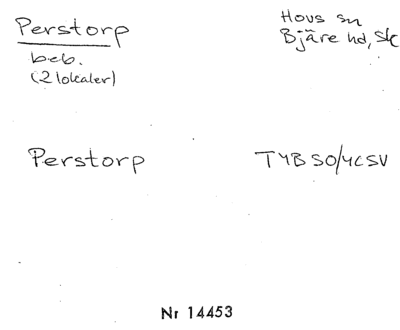 Perstorp
Hovs sn
Bjäre hd, Sk
beb.
(2 lokaler)
Perstorp
TYB SO/4CSV
Nr 14453